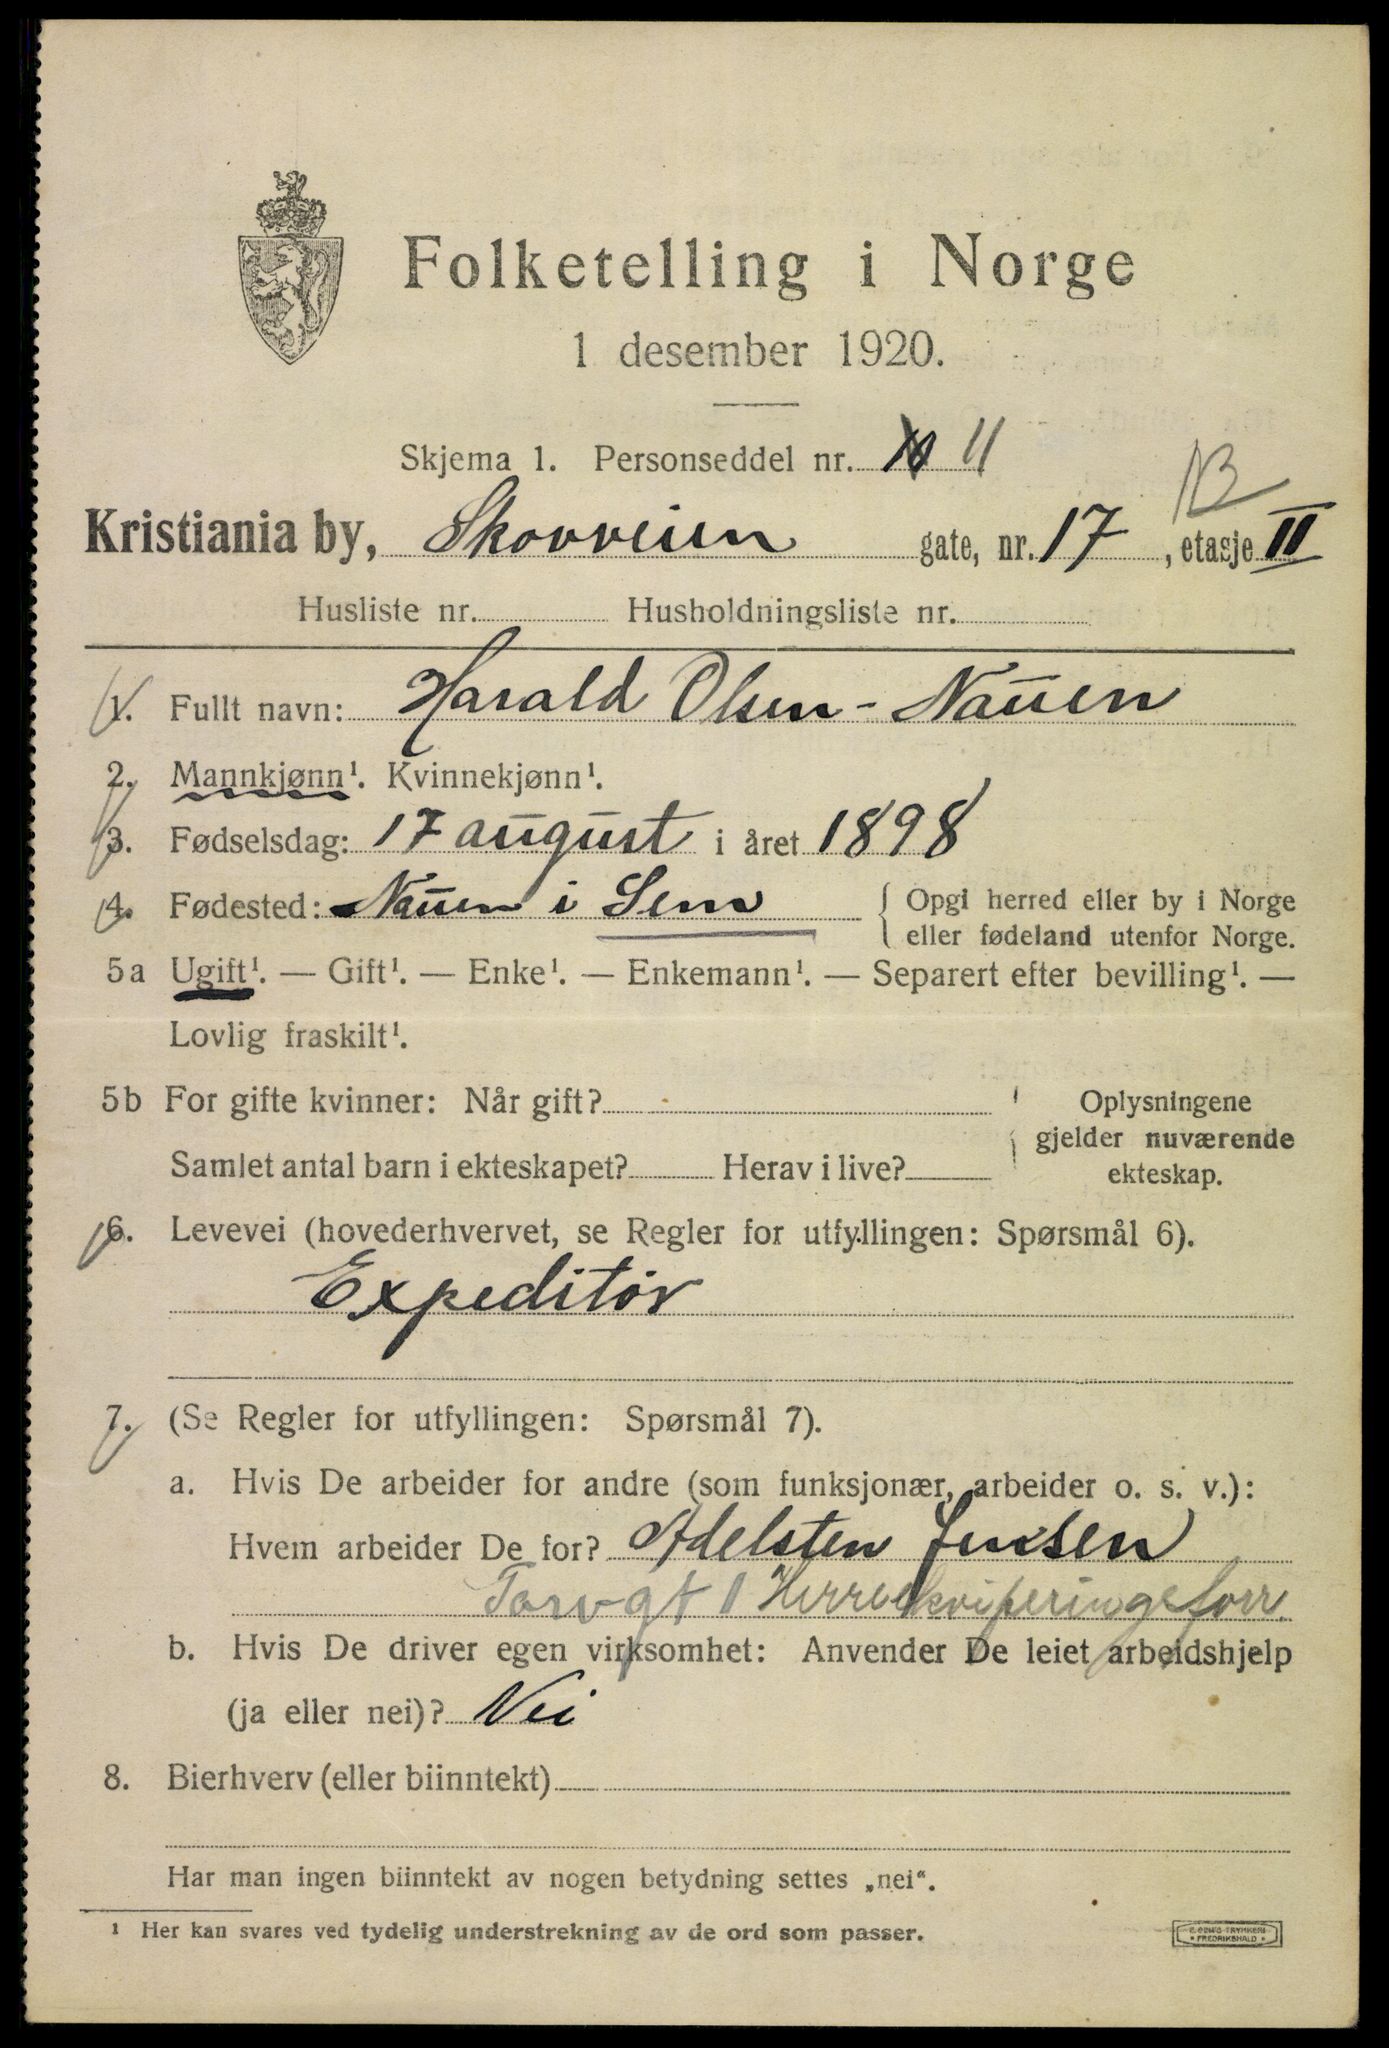 Folketelling i Norge
1 desember 1920.
Skjema 1. Personseddel nr. 11
Kristiania by, Skovveien gate, nr. 17, etasje II
Husliste nr. Husholdningsliste nr.
1. Fullt navn: Harald Olsen-Nauen
2. Mannkjønn¹. Kvinnekjønn¹.
3. Fødselsdag: 17 august i året 1898
4. Fødested: Nauen i Sem { Opgi herred eller by i Norge
eller fødeland utenfor Norge.
5a Ugift¹. — Gift¹. — Enke¹. — Enkemann¹. — Separert efter bevilling¹. —
Lovlig fraskilt¹.
5b For gifte kvinner: Når gift? Oplysningene
gjelder nuværende
Samlet antal barn i ekteskapet? Herav i live? ekteskap.
6. Levevei (hovederhvervet, se Regler for utfyllingen: Spørsmål 6).
Expeditör
7. (Se Regler for utfyllingen: Spørsmål 7).
a. Hvis De arbeider for andre (som funksjonær, arbeider o. s. v.):
Hvem arbeider De for? Adelsten Jensen
Torvgt 1 Herreekviperingsforr.
b. Hvis De driver egen virksomhet: Anvender De leiet arbeidshjelp
(ja eller nei)? Nei
8. Bierhverv (eller biinntekt)
Har man ingen biinntekt av nogen betydning settes „nei“.
¹ Her kan svares ved tydelig understrekning av de ord som passer.
FREDRIKSHALD